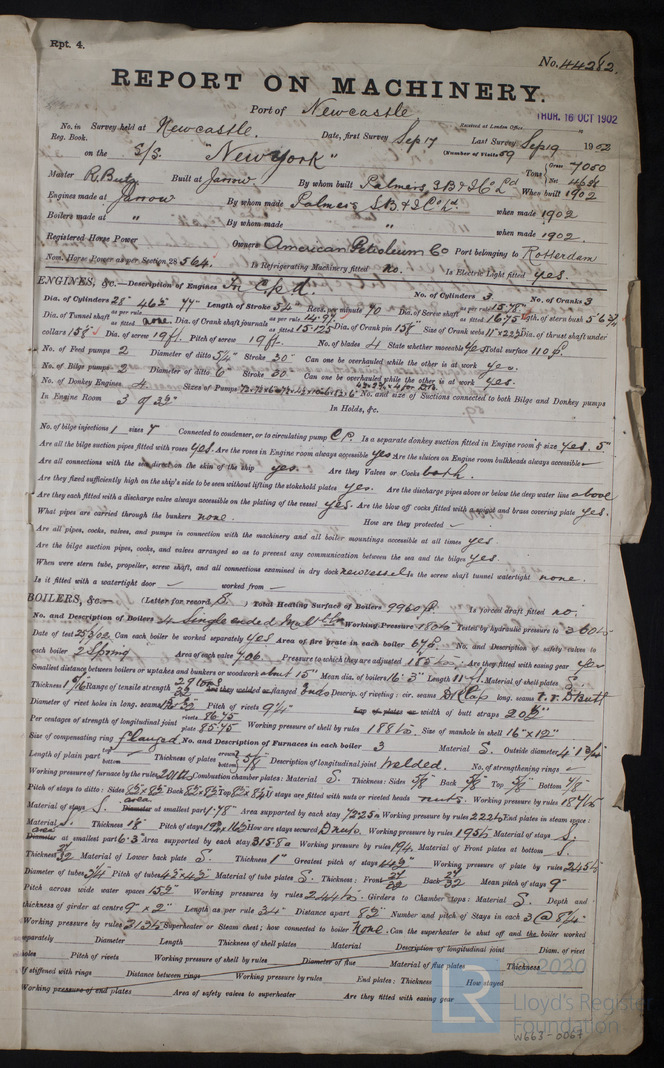 Rpt. 4.
No. 44282.
REPORT ON MACHINERY.
Port of Newcastle
THUR. 16 OCT 1902
Received at London Office
No. in Survey held at Newcastle. Date, first Survey Sep 17 Last Survey Sep 19 1902
Reg. Book. (Number of Visits 59
on the S/S. "New York" Tons Gross 7050 Net
Master R. Butz Built at Jarrow By whom built Palmers S.B & I Co Ld When built 1902
Engines made at Jarrow By whom made Palmers S.B & I Co Ld. when made 1902
Boilers made at " By whom made " when made 1902.
Registered Horse Power Owners American Petroleum Co Port belonging to Rotterdam
Nom. Horse Power as per Section 28 564. Is Refrigerating Machinery fitted no. Is Electric Light fitted yes.
ENGINES, &c.— Description of Engines No. of Cylinders 3 No. of Cranks 3
Dia. of Cylinders 28" 46½" 77" Length of Stroke 54" Revs. per minute 70 Dia. of Screw shaft as per rule as fitted 16.75 Lgth. of stern bush
Dia. of Tunnel shaft as per rule as fitted none. Dia. of Crank shaft journals as per rule 14.97 as fitted 15.125 Dia. of Crank pin Size of Crank webs Dia. of thrust shaft under
collars Dia. of screw 19 ft. Pitch of screw 19 ft. No. of blades 4 State whether moveable yes Total surface 110
No. of Feed pumps 2 Diameter of ditto Stroke 30" Can one be overhauled while the other is at work yes.
No. of Bilge pumps 2 Diameter of ditto 6" Stroke 30 Can one be overhauled while the other is at work yes.
No. of Donkey Engines 4 Sizes of Pumps No. and size of Suctions connected to both Bilge and Donkey pumps
In Engine Room 3 of 3½" In Holds, &c.
No. of bilge injections 1 sizes 7 Connected to condenser, or to circulating pump C.P. Is a separate donkey suction fitted in Engine room & size yes. 5"
Are all the bilge suction pipes fitted with roses yes. Are the roses in Engine room always accessible yes Are the sluices on Engine room bulkheads always accessible —
Are all connections with the sea direct on the skin of the ship yes. Are they Valves or Cocks both.
Are they fixed sufficiently high on the ship's side to be seen without lifting the stokehold plates yes. Are the discharge pipes above or below the deep water line above
Are they each fitted with a discharge valve always accessible on the plating of the vessel yes. Are the blow off cocks fitted with a spigot and brass covering plate yes.
What pipes are carried through the bunkers none. How are they protected —
Are all pipes, cocks, valves, and pumps in connection with the machinery and all boiler mountings accessible at all times yes
Are the bilge suction pipes, cocks, and valves arranged so as to prevent any communication between the sea and the bilges yes.
When were stern tube, propeller, screw shaft, and all connections examined in dry dock new vessel Is the screw shaft tunnel watertight none.
Is it fitted with a watertight door — worked from —
BOILERS, &c.— (Letter for record S.) Total Heating Surface of Boilers 9960 Is forced draft fitted no.
No. and Description of Boilers 4 Single ended Working Pressure 180 lb Tested by hydraulic pressure to 360 lb
Date of test 25/3/02 Can each boiler be worked separately yes Area of fire grate in each boiler No. and Description of safety valves to
each boiler 2 Spring Area of each valve 7.06 Pressure to which they are adjusted 185 lb Are they fitted with easing gear yes
Smallest distance between boilers or uptakes and bunkers or woodwork about 15" Mean dia. of boilers 16' 3" Length 11 ft. Material of shell plates S.
Thickness Range of tensile strength Are they welded or flanged Ends Descrip. of riveting: cir. seams long. seams
Diameter of rivet holes in long. seams Pitch of rivets 9¼" Lap of plates or width of butt straps
Per centages of strength of longitudinal joint rivets 86.75 plate 85.75 Working pressure of shell by rules 188 lb Size of manhole in shell 16" x 12"
Size of compensating ring flanged No. and Description of Furnaces in each boiler 3 Material S. Outside diameter
Length of plain part top bottom Thickness of plates crown bottom 5/8 Description of longitudinal joint welded. No. of strengthening rings —
Working pressure of furnace by the rules Combustion chamber plates: Material S. Thickness: Sides 5/8 Back 5/8 Top 5/8 Bottom 7/8
Pitch of stays to ditto: Sides Back Top If stays are fitted with nuts or riveted heads nuts. Working pressure by rules 187 lb
Material of stays S. area Diameter at smallest part 1.78" Area supported by each stay Working pressure by rules End plates in steam space:
Material S. Thickness Pitch of stays How are stays secured Working pressure by rules 195 lb Material of stays S.
area Diameter at smallest part Area supported by each stay Working pressure by rules 194. Material of Front plates at bottom S.
Thickness Material of Lower back plate S. Thickness 1" Greatest pitch of stays Working pressure of plate by rules
Diameter of tubes 3¼" Pitch of tubes Material of tube plates S. Thickness: Front Back Mean pitch of stays 9"
Pitch across wide water space Working pressures by rules 244 lb Girders to Chamber tops: Material S. Depth and
thickness of girder at centre 9" x 2" Length as per rule Distance apart Number and pitch of Stays in each
Working pressure by rules Superheater or Steam chest; how connected to boiler None. Can the superheater be shut off and the boiler worked
separately Diameter Length Thickness of shell plates Material Description of longitudinal joint Diam. of rivet
holes Pitch of rivets Working pressure of shell by rules Diameter of flue Material of flue plates Thickness
If stiffened with rings Distance between rings Working pressure by rules End plates: Thickness How stayed
Working pressure of end plates Area of safety valves to superheater Are they fitted with easing gear
© 2020
LR Lloyd's Register
Foundation
W663-0067